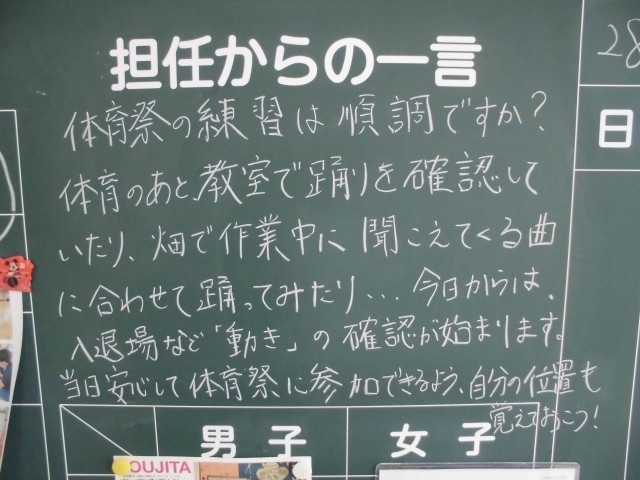 担任からの一言
28
日
体育祭の練習は順調ですか?
体育のあと、教室で踊りを確認して
いたり、畑で作業中に聞こえてくる曲
に合わせて踊ってみたり…今日からは、
入退場など「動き」の確認が始まります。
当日安心して体育祭に参加できるよう、自分の位置も
覚えておこう!
男子
女子
OUJITA